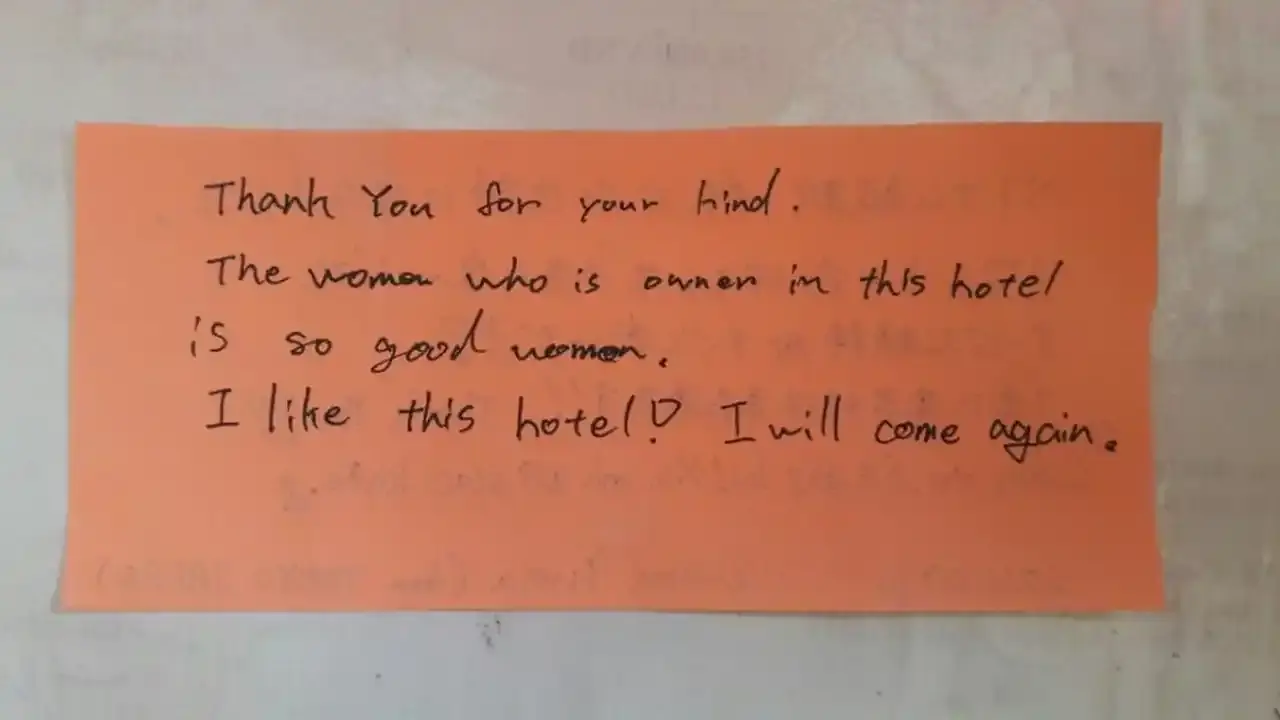 Thank You for your kind.
The woman who is owner in this hotel
is so good woman.
I like this hotel! I will come again.